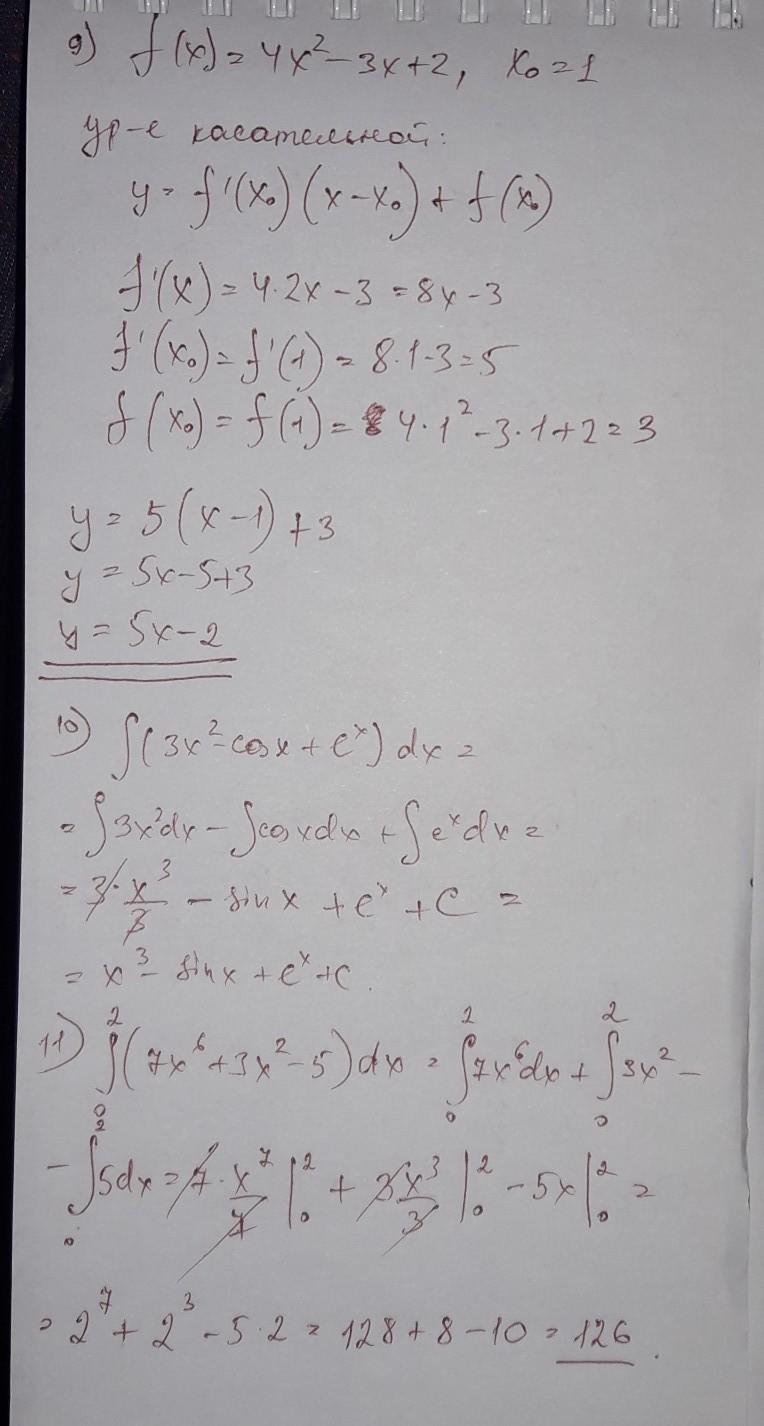 9) f(x) = 4x² − 3x + 2, x₀ = 1
ур-е касательной:
y = f'(x₀)(x − x₀) + f(x₀)
f'(x) = 4·2x − 3 = 8x − 3
f'(x₀) = f'(1) = 8·1 − 3 = 5
f(x₀) = f(1) = 4·1² − 3·1 + 2 = 3
y = 5(x − 1) + 3
y = 5x − 5 + 3
y = 5x − 2
10) ∫(3x² − cos x + eˣ) dx =
= ∫3x²dx − ∫cos x dx + ∫eˣdx =
= 3·x³/3 − sin x + eˣ + C =
= x³ − sin x + eˣ + C.
11) ∫₀²(7x⁶ + 3x² − 5)dx = ∫₀²7x⁶dx + ∫₀²3x² −
− ∫₀²5dx = 7·x⁷/7 |₀² + 3x³/3 |₀² − 5x |₀² =
= 2⁷ + 2³ − 5·2 = 128 + 8 − 10 = 126.